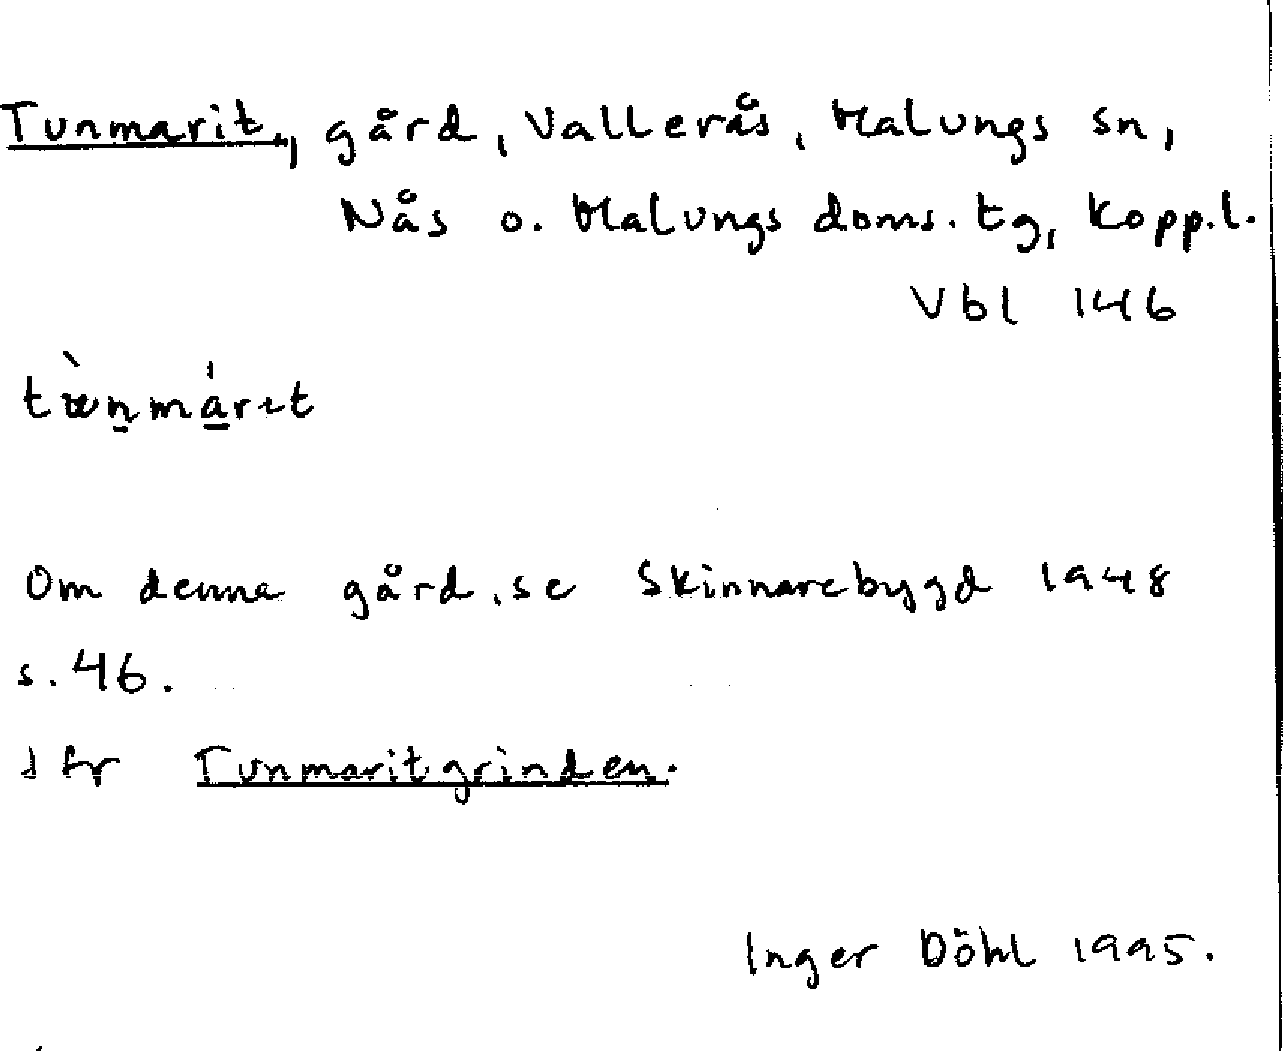 Tunmarit, gård, Vallerås, Malungs sn,
Nås o. Malungs doms. tg, Kopp.l.
Vbl 146
Om denna gård, se Skinnarebygd 1948
s. 46.
Jfr Tunmaritgrinden.
Inger Döhl 1995.